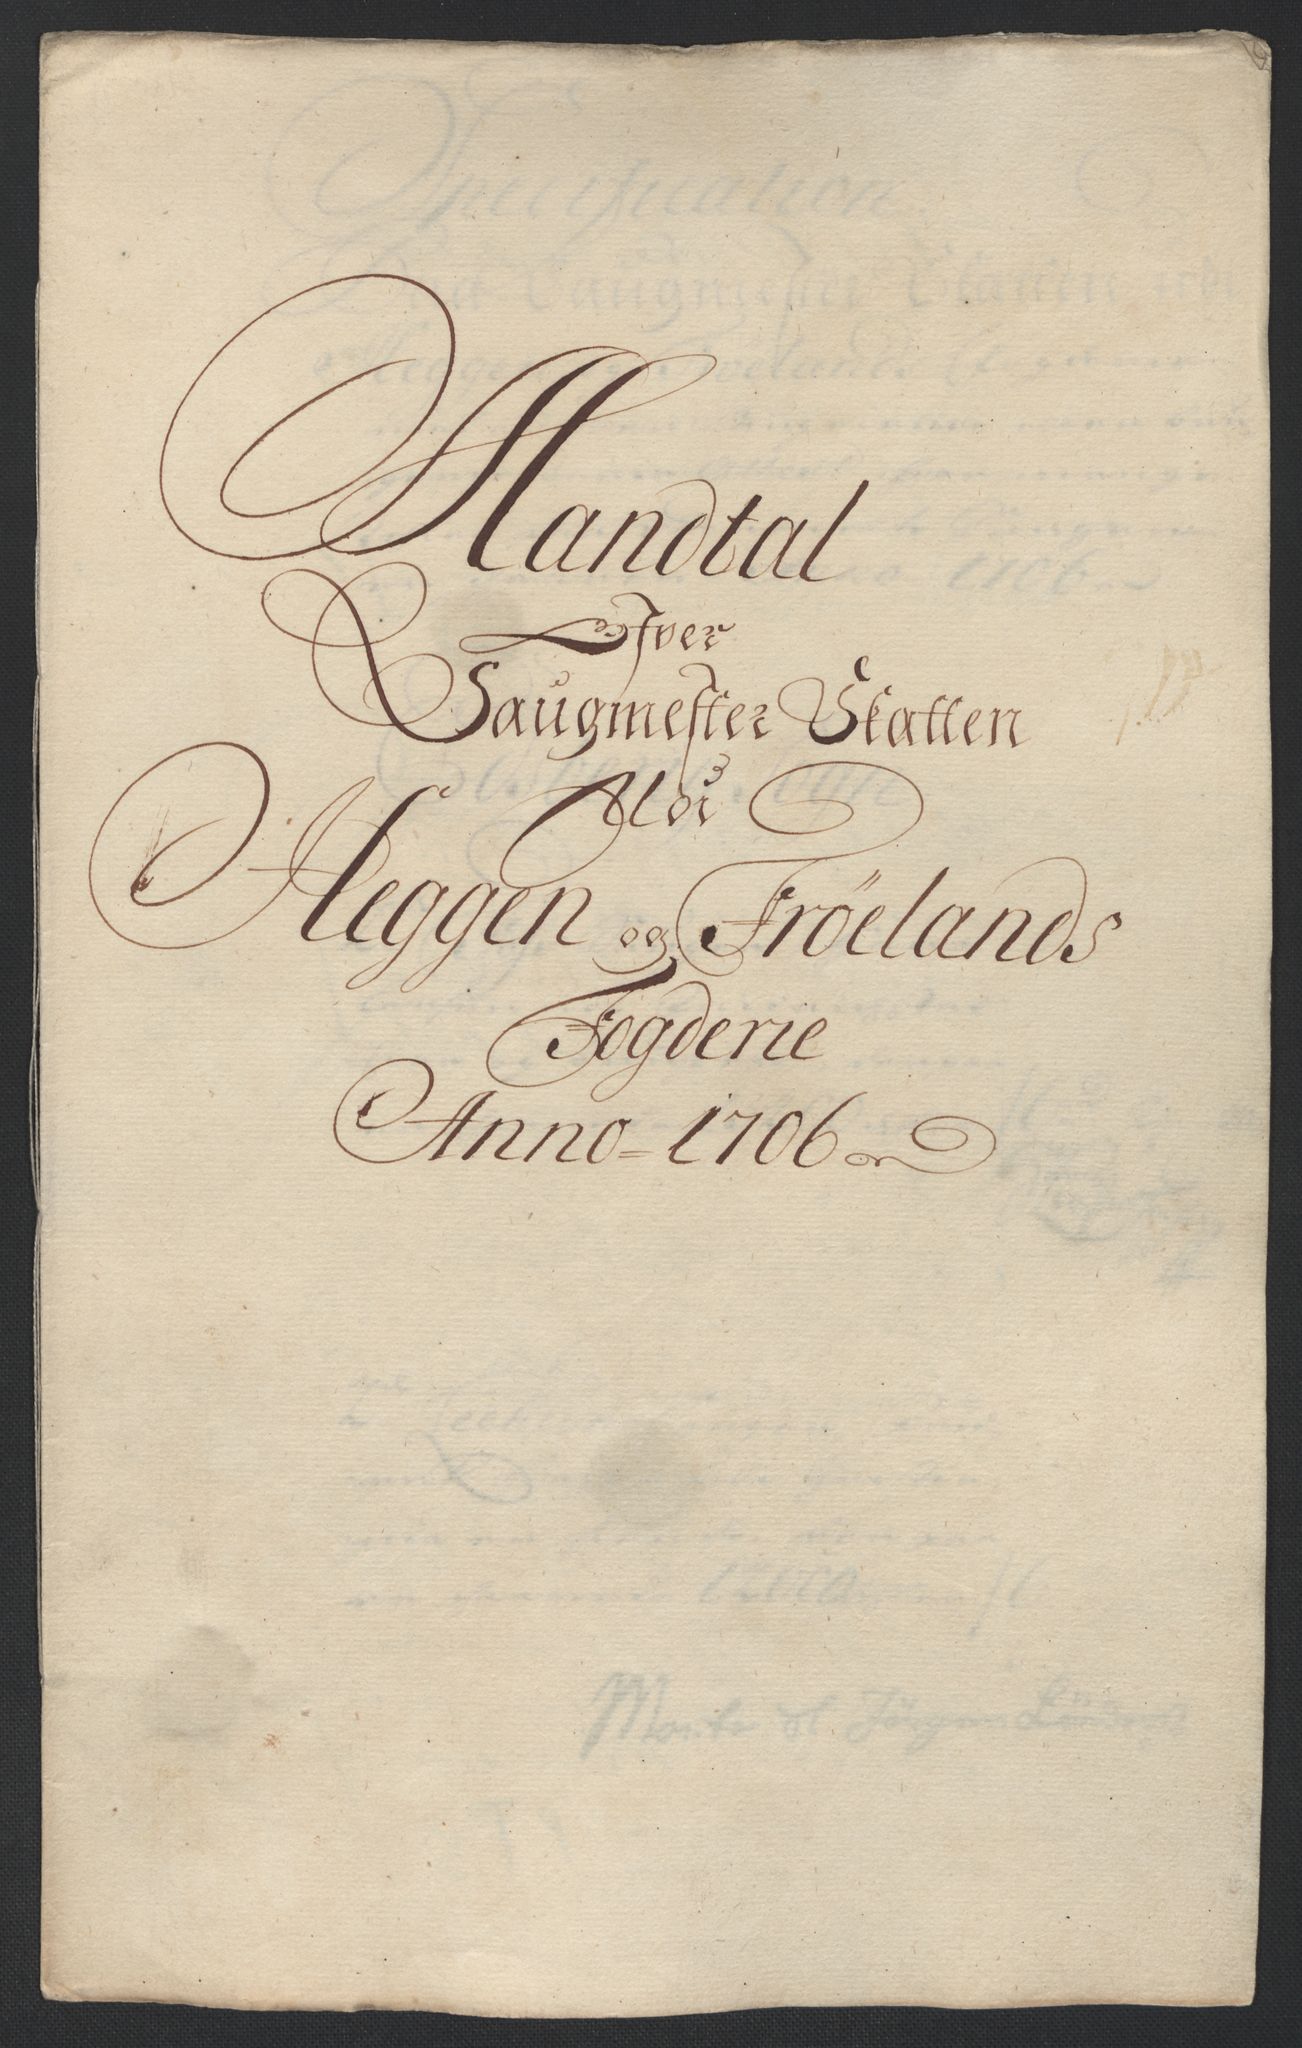 Mandtal
Ofver
Saugmester Skatten
Udi
Heggen og Fröelands
Fogderie
Anno = 1706